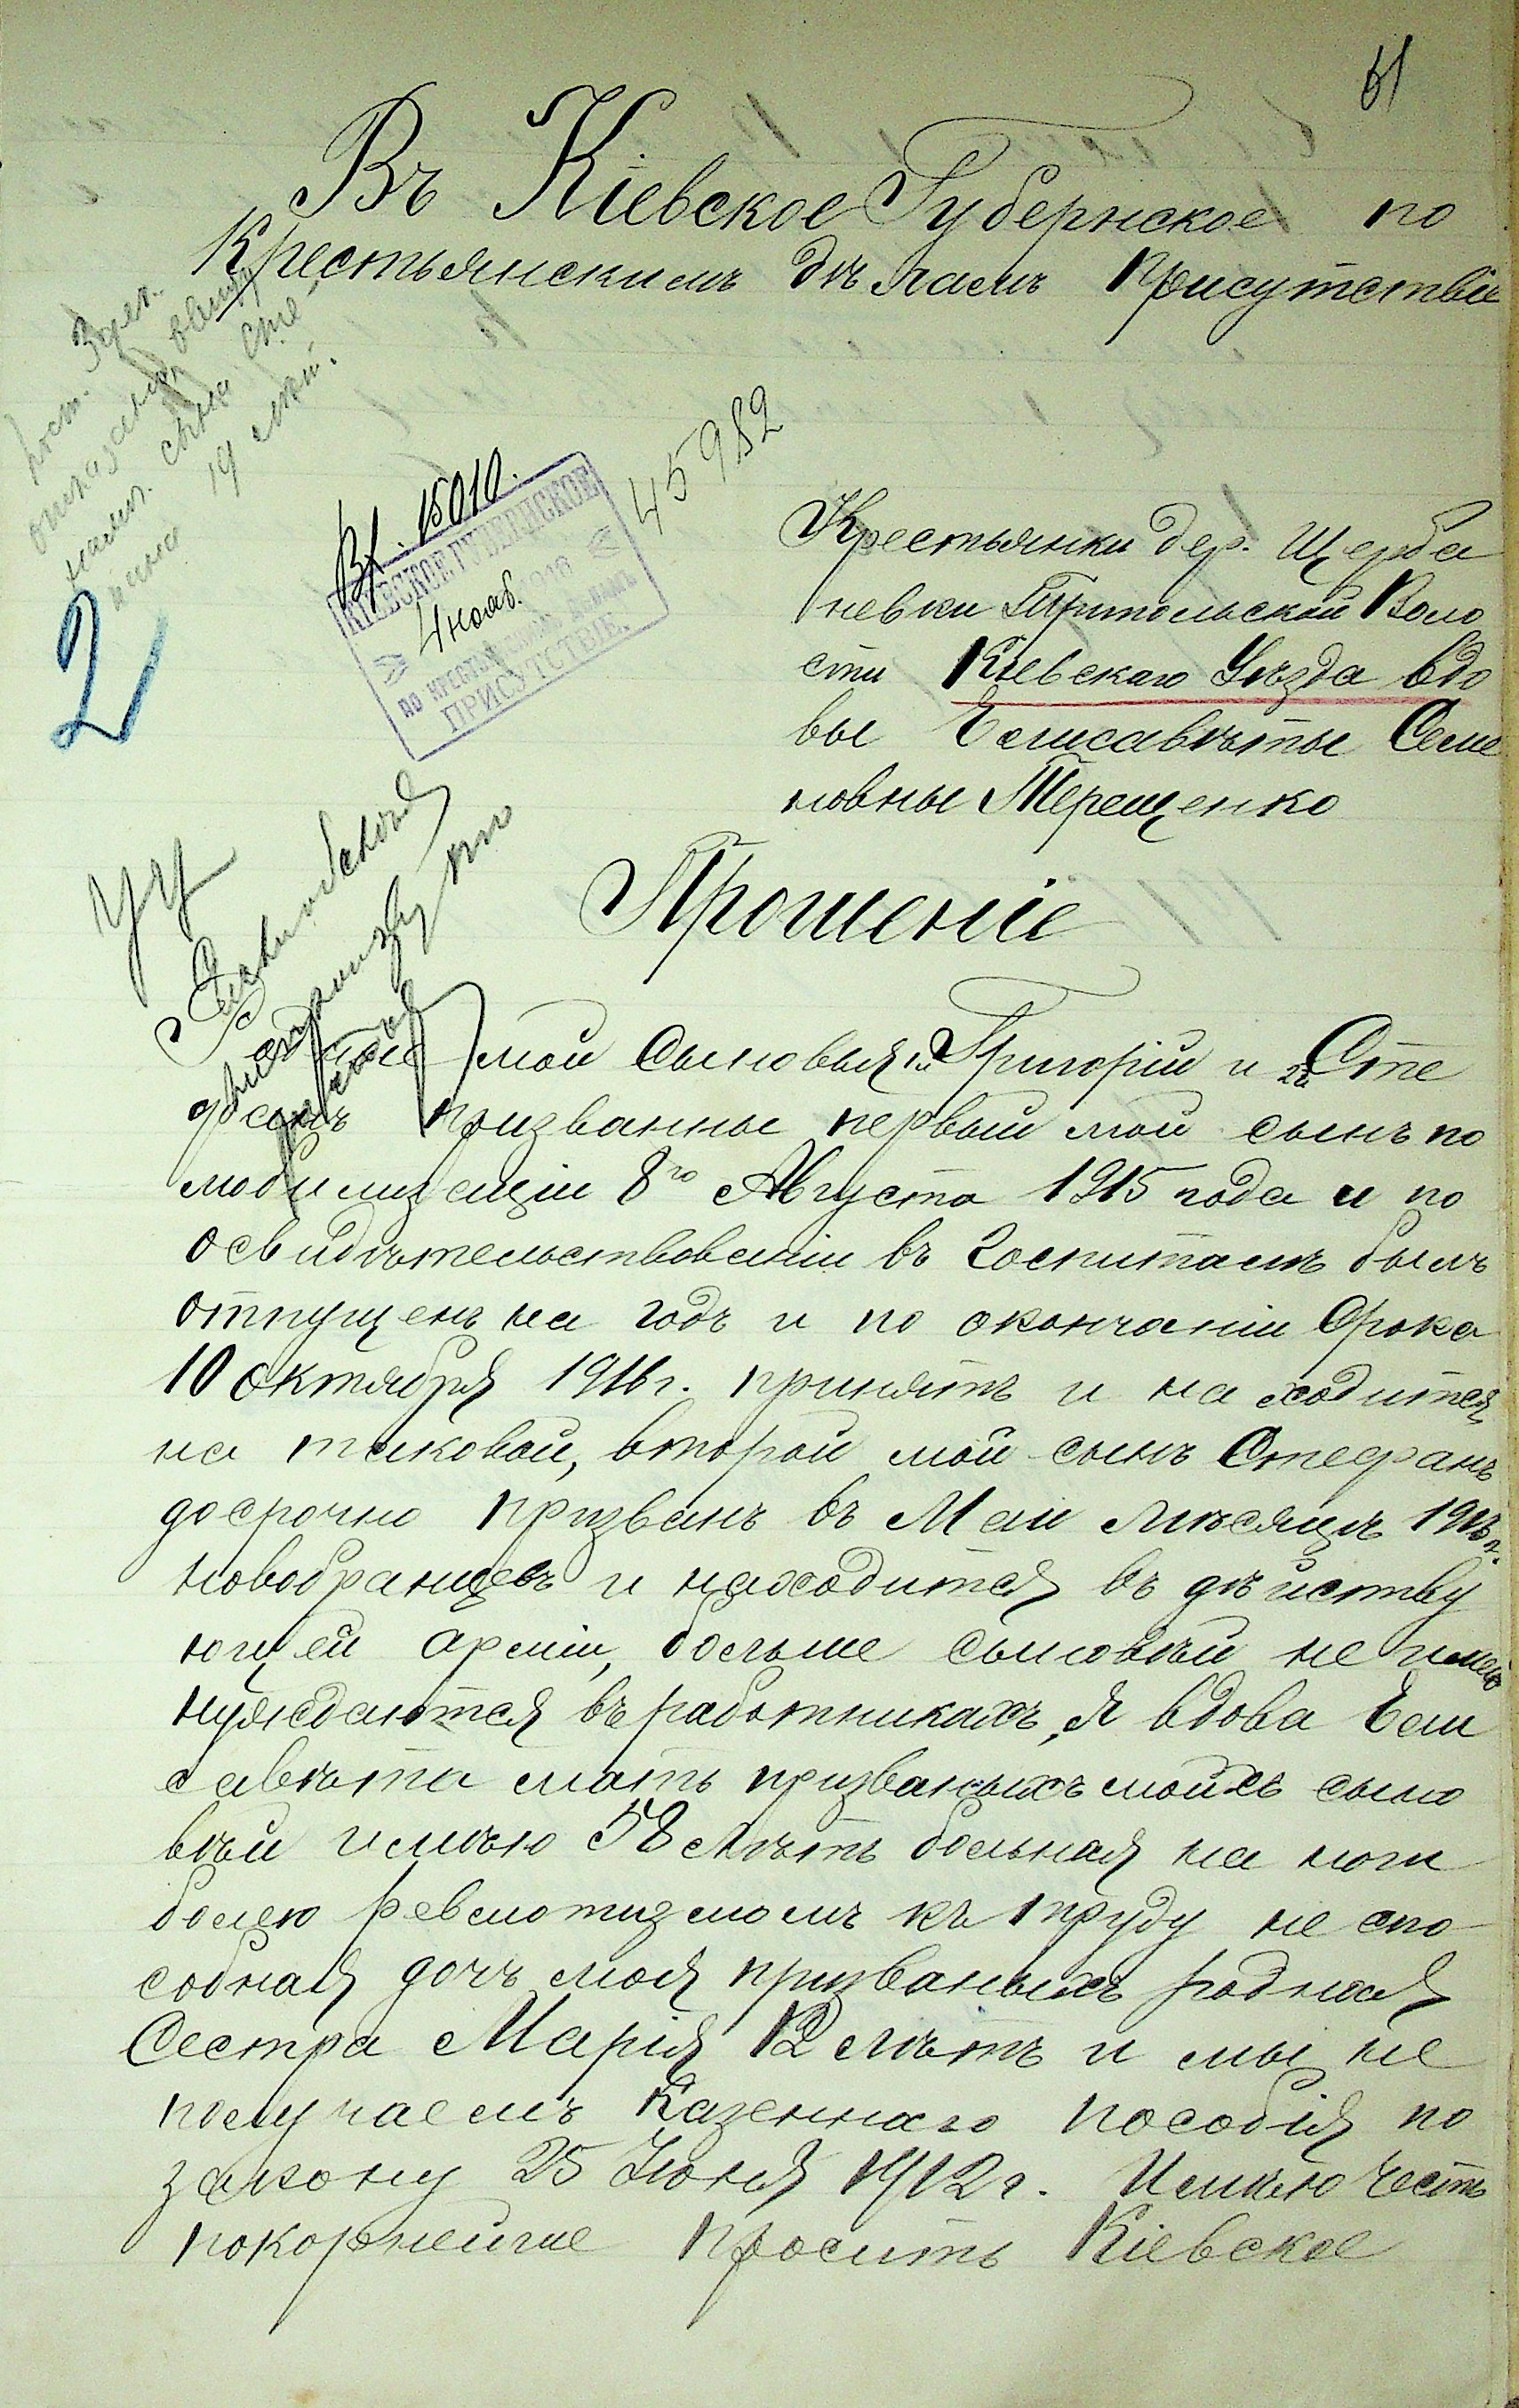 61
Въ Кіевское Губернское по
Крестьянскимъ дѣламъ Присутствіе
45982
Вх. 15010.
КІЕВСКОЕ ГУБЕРНСКОЕ
4 нояб. 1916
ПО КРЕСТЬЯНСКИМЪ ДѢЛАМЪ
ПРИСУТСТВІЕ.
2
Крестьянки дер. Щерба
невки Трипольской Воло
сти Кіевскаго Уѣзда вдо
вы Елисавѣты Семе
новны Терещенко
Прошеніе
мои Сыновья 1й Григорій и 2й Сте
фанъ призванные первый мой сынъ по
мобилизаціи 8го Августа 1915 года и по
освидѣтельствованіи въ Госпиталѣ былъ
отпущенъ на годъ и по окончаніи Срока
10 октября 1916 г. принятъ и на ходится
на таковой, второй мой сынъ Стефанъ
досрочно призванъ въ Маи мѣсяцѣ 1916 г.
новобранцевъ и находится въ дѣйству
ющей арміи, больше сыновѣй не имею
нуждаются въ работникахъ, я вдова Ели
савѣта мать призваныхъ моихъ сыно
вѣй имѣю 58 лѣтъ больная на ноги
болею ревмотизмомъ къ труду не спо
собная дочъ моя призваныхъ родная
Сестра Марія 12 лѣтъ и мы не
получаемъ Казеннаго пособія по
закону 25 Іюня 1912 г. Имѣю Честь
покорнейше просить Кіевское